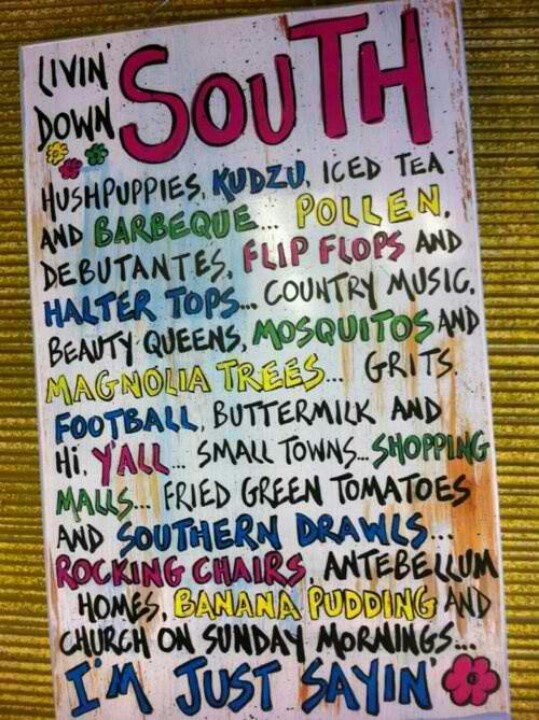 LIVIN'
DOWN SOUTH
HUSHPUPPIES, KUDZU, ICED TEA
AND BARBEQUE... POLLEN,
DEBUTANTES, FLIP FLOPS AND
HALTER TOPS... COUNTRY MUSIC,
BEAUTY QUEENS, MOSQUITOS AND
MAGNOLIA TREES... GRITS,
FOOTBALL, BUTTERMILK AND
Hi, Y'ALL... SMALL TOWNS... SHOPPING
MALLS... FRIED GREEN TOMATOES
AND SOUTHERN DRAWLS...
ROCKING CHAIRS, ANTEBELLUM
HOMES, BANANA PUDDING AND
CHURCH ON SUNDAY MORNINGS...
I'M JUST SAYIN'